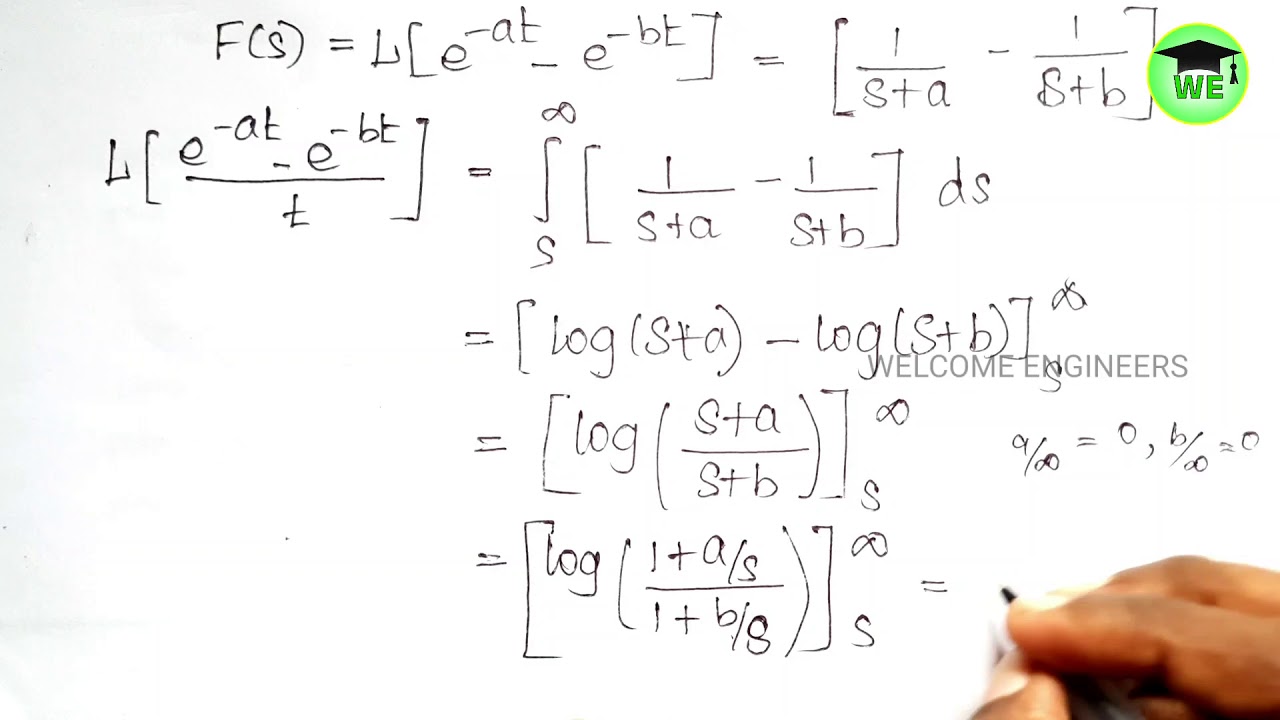 F(s) = L[e^{-at} - e^{-bt}] = [1/(s+a) - 1/(s+b)]
WE
L[(e^{-at} - e^{-bt})/t] = ∫_s^∞ [1/(s+a) - 1/(s+b)] ds
= [log(s+a) - log(s+b)]_s^∞
WELCOME ENGINEERS
= [log((s+a)/(s+b))]_s^∞
a/∞ = 0, b/∞ = 0
= [log((1+a/s)/(1+b/s))]_s^∞ =